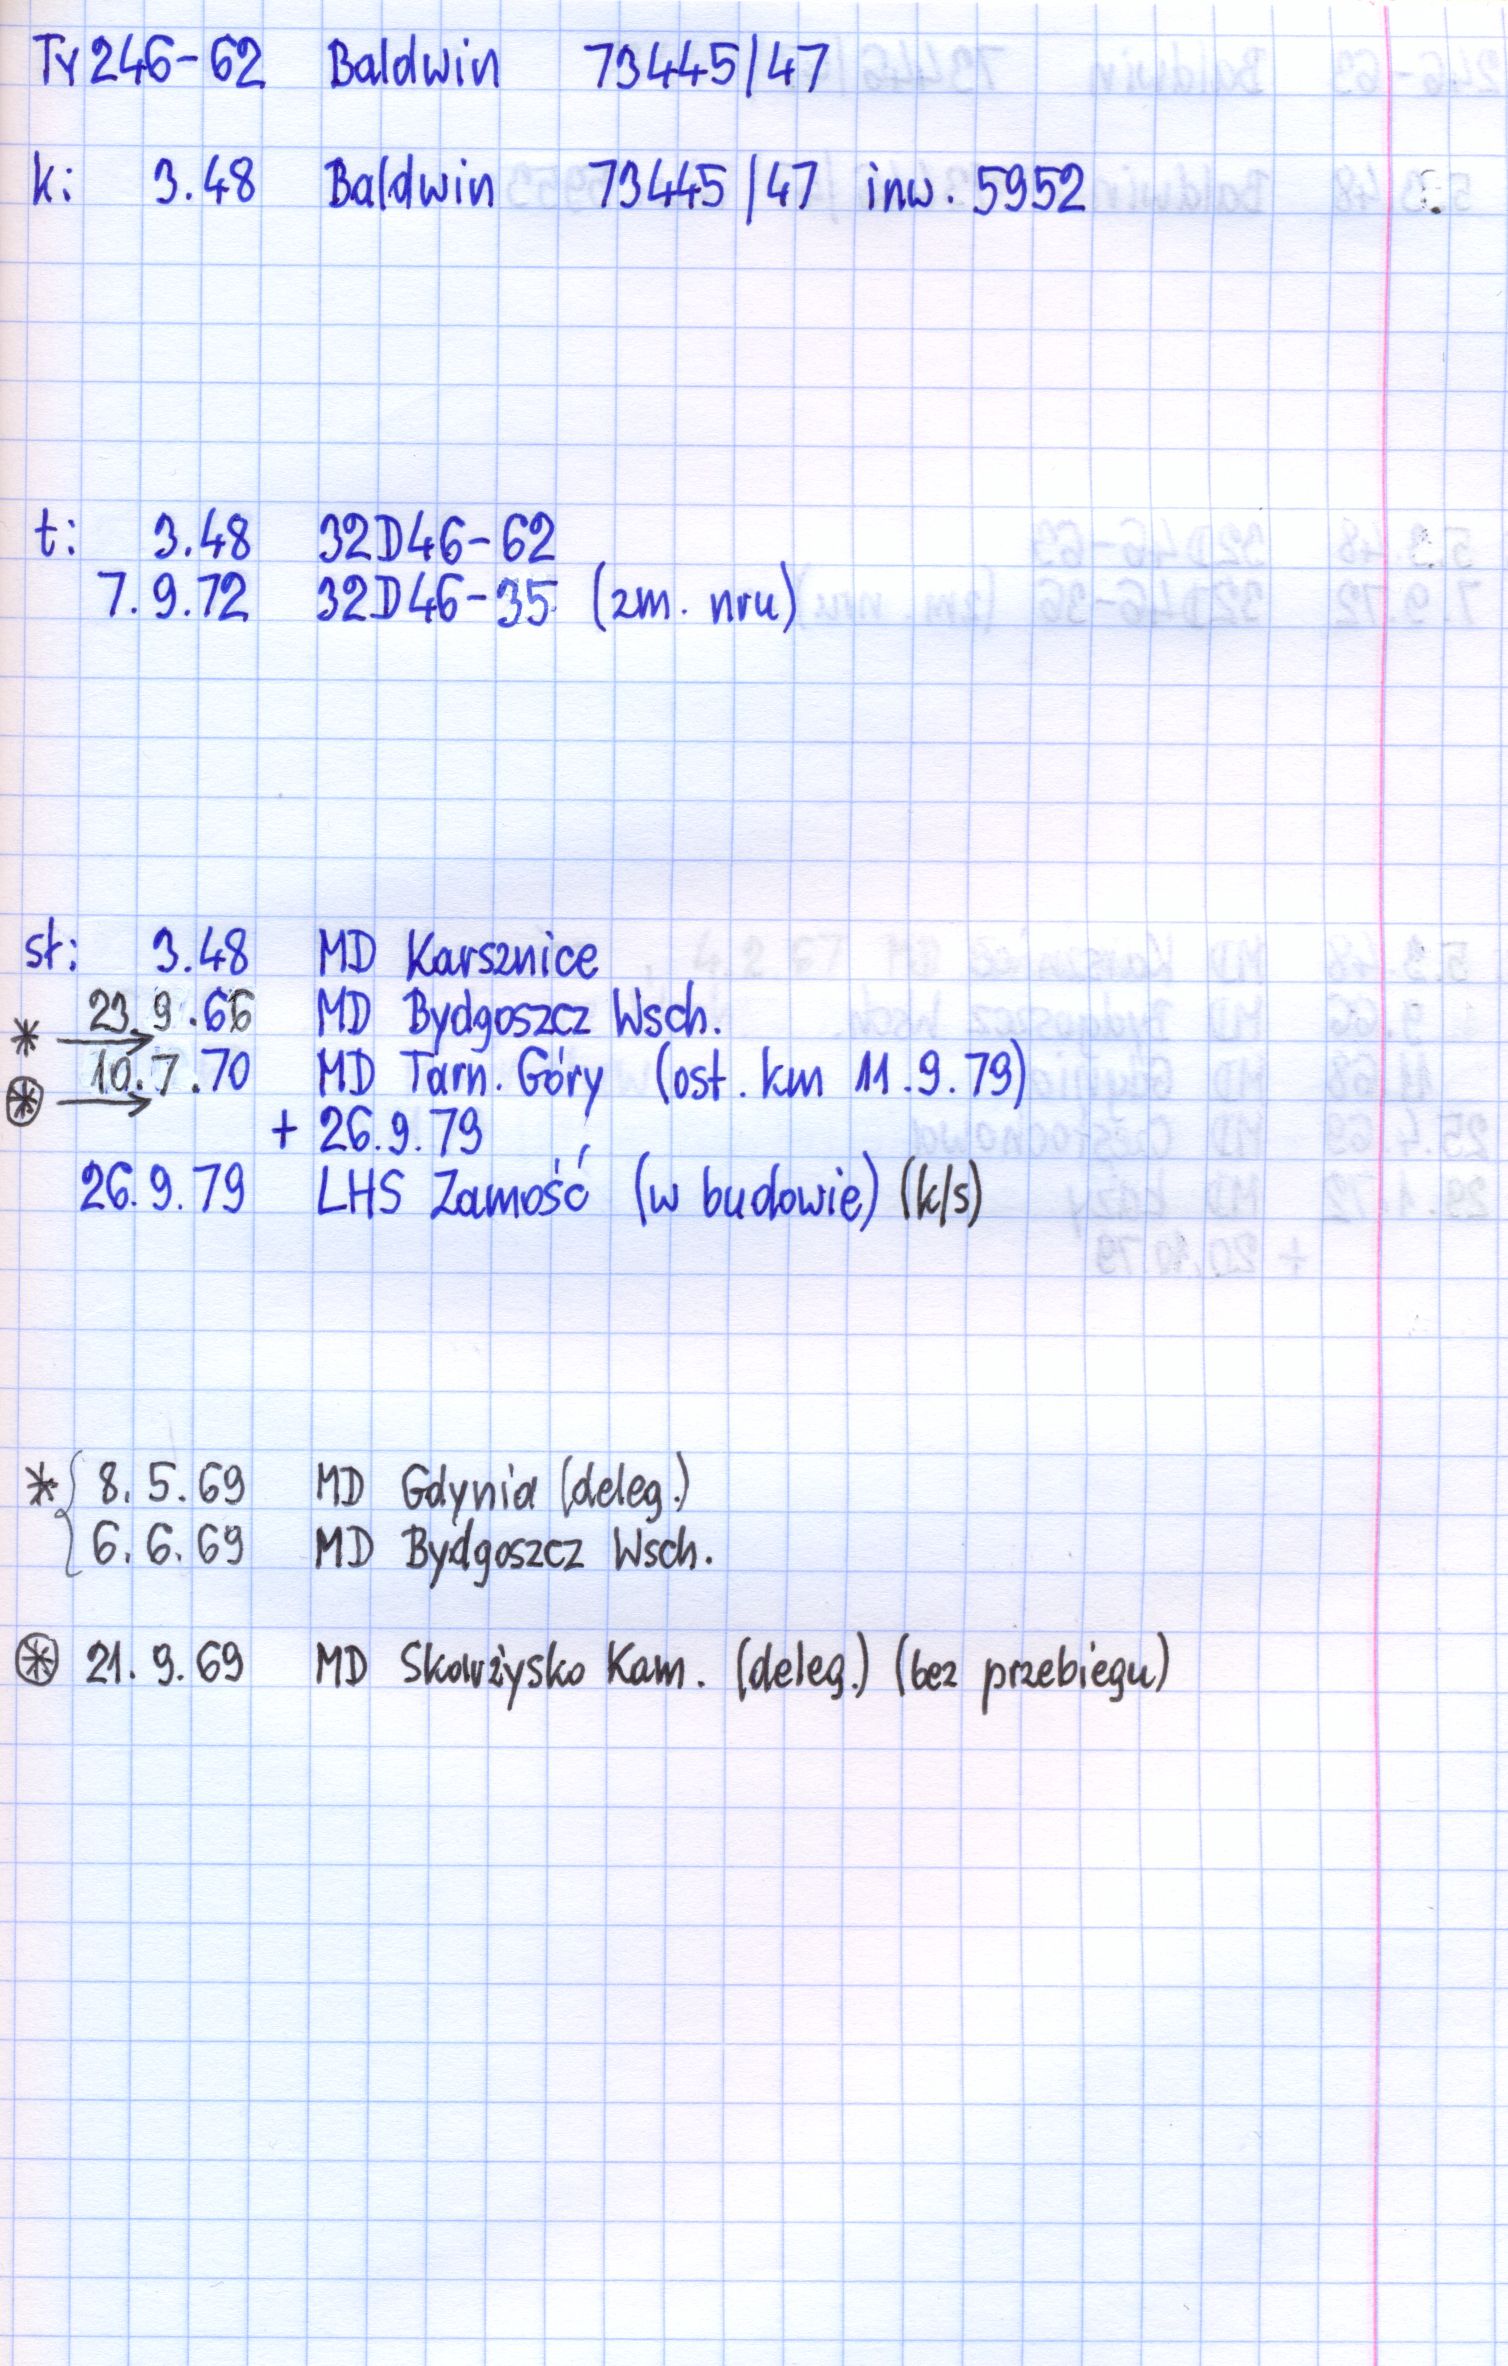 Ty246-62 Baldwin 73445/47
k: 3.48 Baldwin 73445/47 inw. 5952
t: 3.48 32D46-62
7.9.72 32D46-35 (zm. nru)
st: 3.48 MD Karsznice
23.9.66 MD Bydgoszcz Wsch.
* →
10.7.70 MD Tarn. Góry (ost. km 11.9.79)
⊛ →
+ 26.9.79
26.9.79 LHS Zamość (w budowie) (k/s)
* { 8.5.69 MD Gdynia (deleg.)
6.6.69 MD Bydgoszcz Wsch.
⊛ 21.9.69 MD Skarżysko Kam. (deleg.) (bez przebiegu)